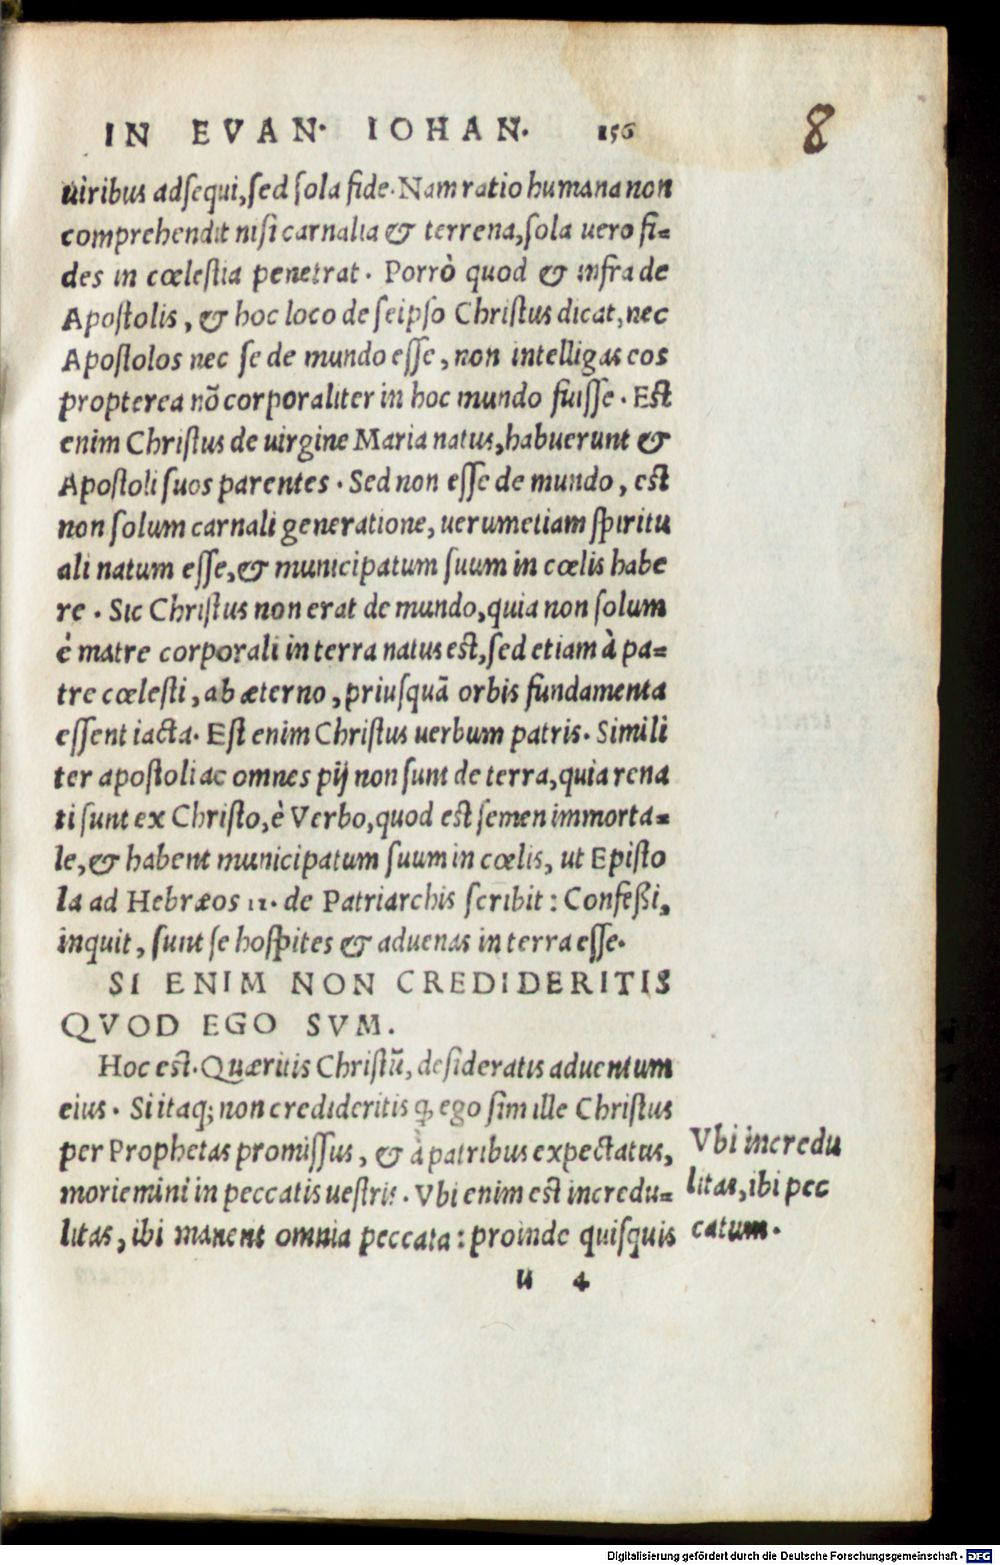 IN EVAN. IOHAN. 156
8
uiribus adsequi, sed sola fide. Nam ratio humana non
comprehendit nisi carnalia & terrena, sola uero fi=
des in cœlestia penetrat. Porrò quod & infra de
Apostolis, & hoc loco de seipso Christus dicat, nec
Apostolos nec se de mundo esse, non intelligas eos
propterea nõ corporaliter in hoc mundo fuisse. Est
enim Christus de uirgine Maria natus, habuerunt &
Apostoli suos parentes. Sed non esse de mundo, est
non solum carnali generatione, uerumetiam spiritu
ali natum esse, & municipatum suum in cœlis habe
re. Sic Christus non erat de mundo, quia non solum
è matre corporali in terra natus est, sed etiam à pa=
tre cœlesti, ab æterno, priusquã orbis fundamenta
essent iacta. Est enim Christus uerbum patris. Simili
ter apostoli ac omnes pij non sunt de terra, quia rena
ti sunt ex Christo, è Verbo, quod est semen immorta=
le, & habent municipatum suum in cœlis, ut Episto
la ad Hebræos 11. de Patriarchis scribit: Confeßi,
inquit, sunt se hospites & aduenas in terra esse.
SI ENIM NON CREDIDERITIS
QVOD EGO SVM.
Hoc est. Quæritis Christũ, desideratis aduentum
eius. Si itaq; non credideritis ꝙ ego sim ille Christus
per Prophetas promissus, & à patribus expectatus,
moriemini in peccatis uestris. Vbi enim est incredu=
litas, ibi manent omnia peccata: proinde quisquis
Vbi incredu
litas, ibi pec
catum.
u 4
Digitalisierung gefördert durch die Deutsche Forschungsgemeinschaft - DFG